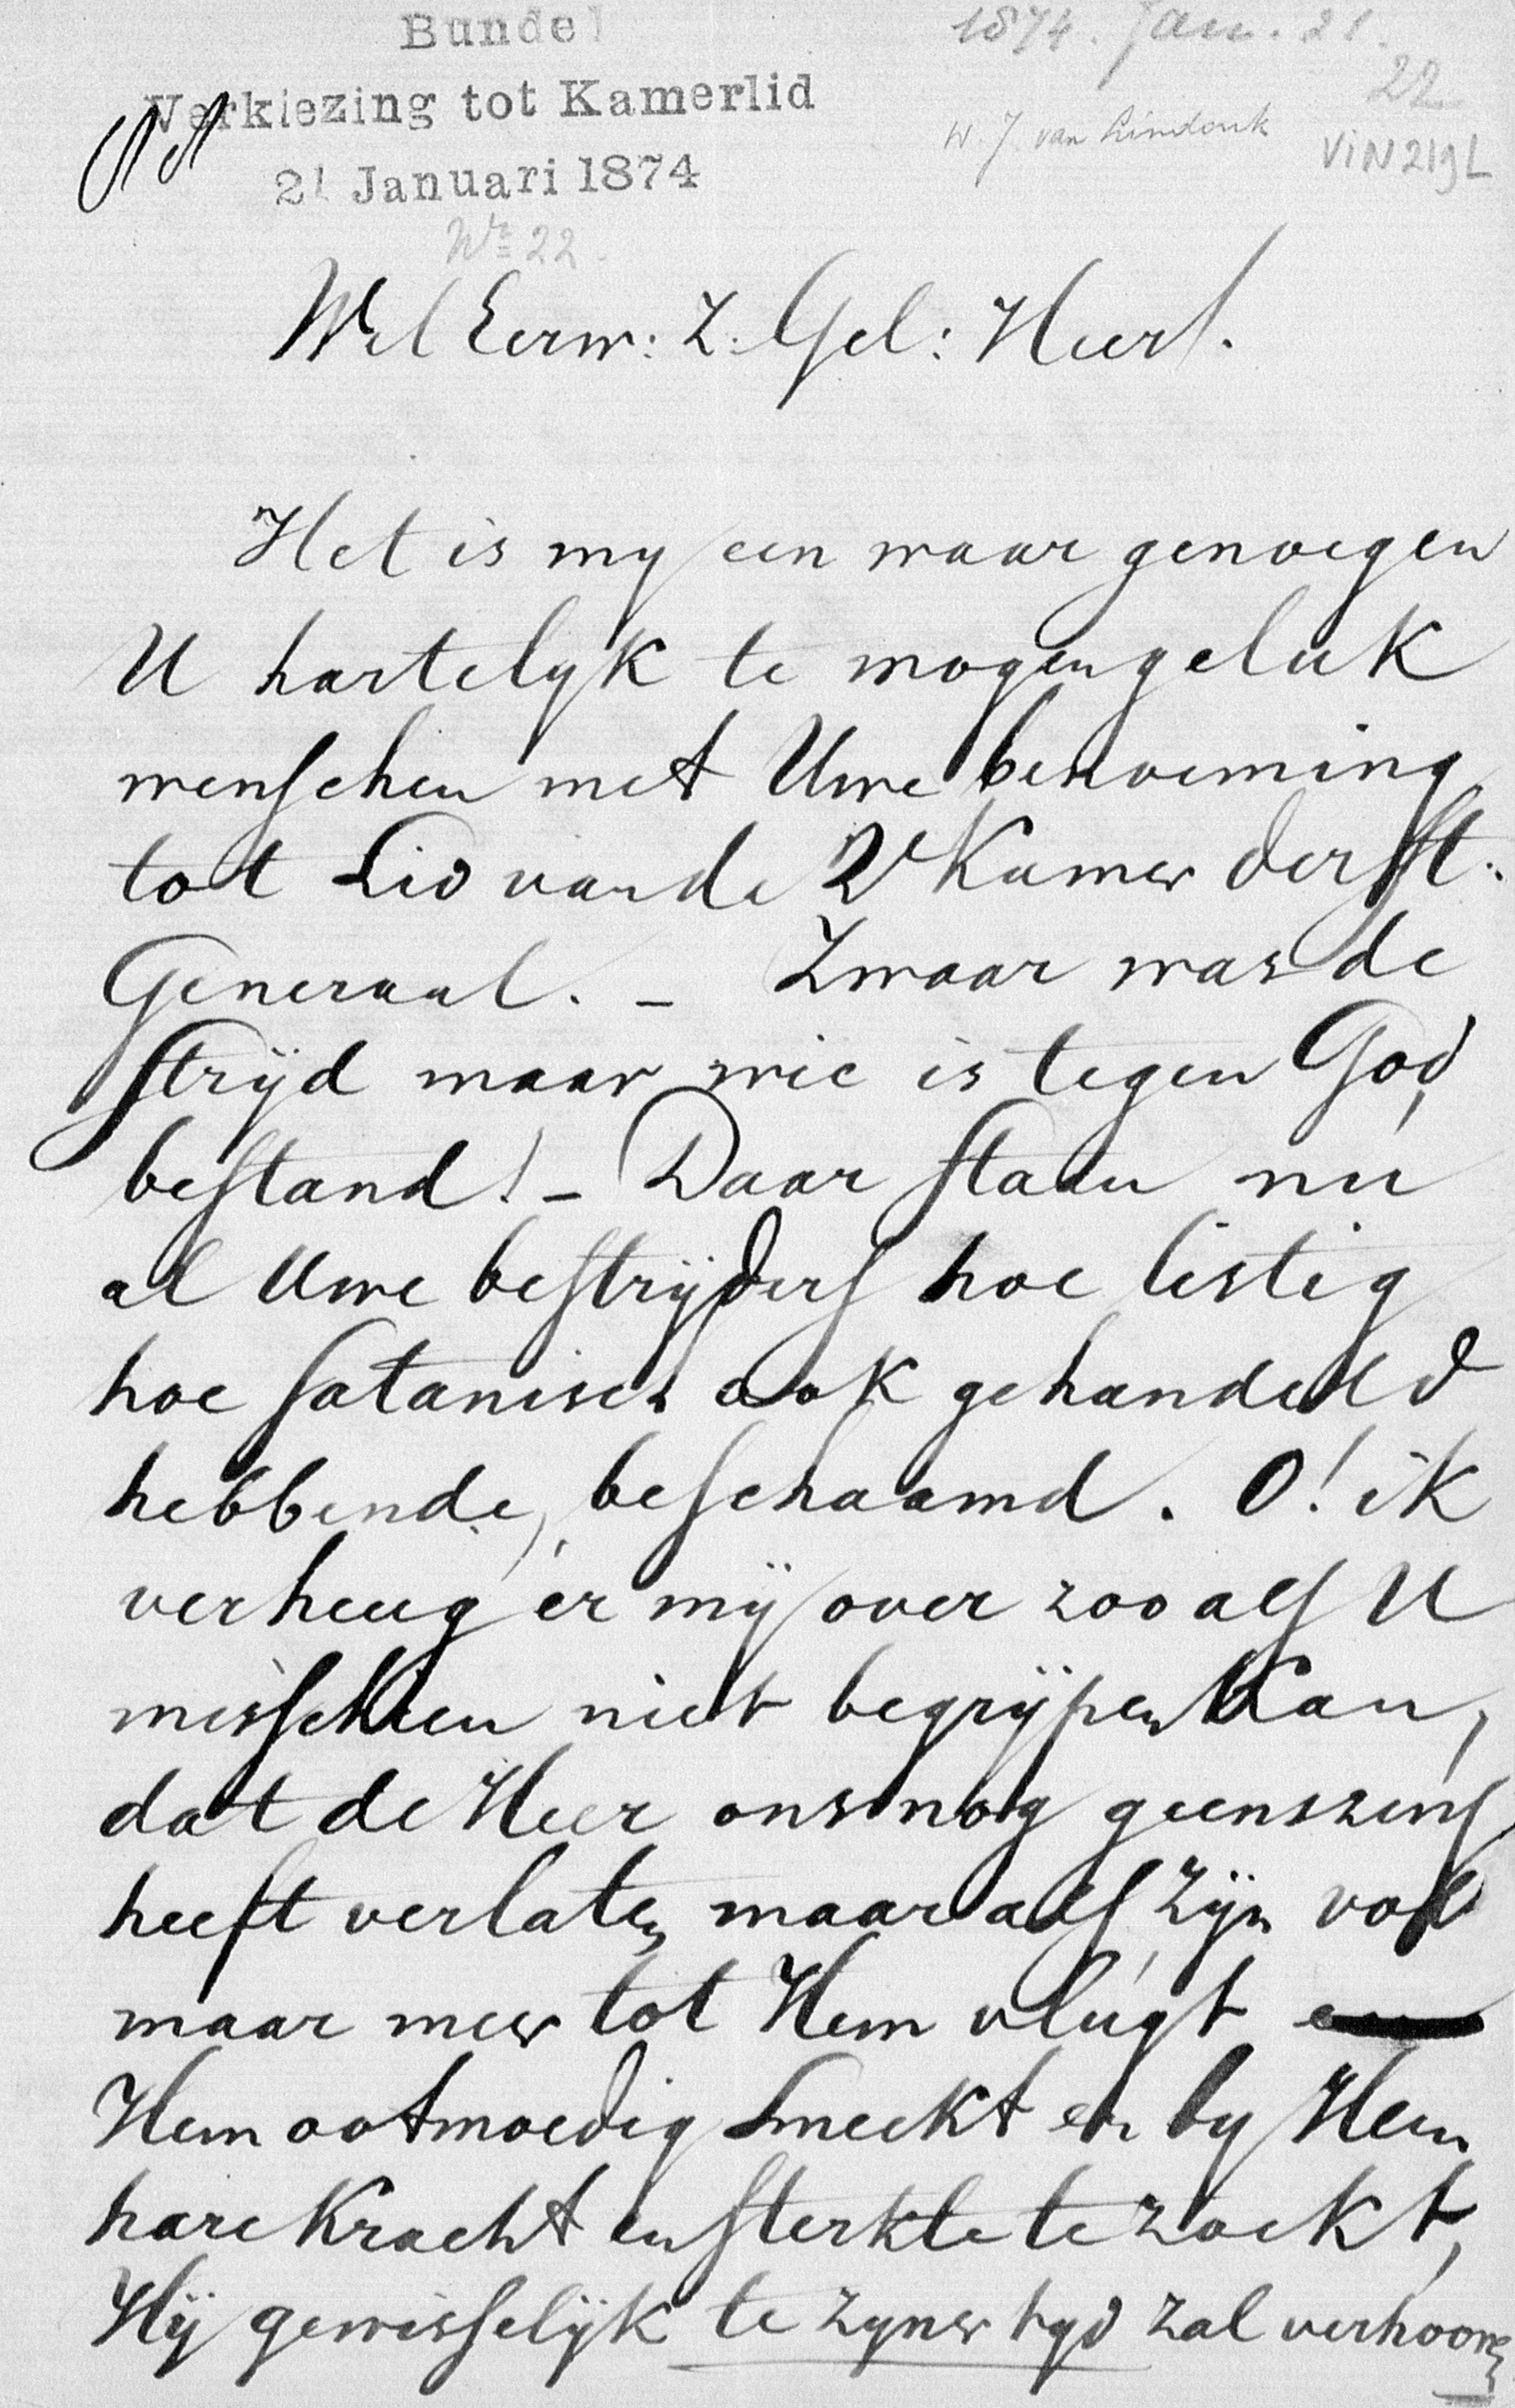 Bundel
1874. Jan. 21.
Verkiezing tot Kamerlid
22
21 Januari 1874
W. J. van Lindonk
VIN219L
No 22.
WelEerw: Z. Gel: Heer!
Het is my een waar genoegen
U hartelyk te mogen geluk
wenschen met Uwe benoeming
tot Lid van de 2e Kamer der St:
Generaal. – Zwaar was de
Strijd maar wie is tegen God
bestand! – Daar staan nu
al Uwe bestrijders hoe listig
hoe satanisch ook gehandeld
hebbende, beschaamd. O! ik
verheug er mij over zoo als U
misschien niet begrijpen kan,
dat de Heer ons nog geenszins
heeft verlaten, maar als zijn volk
maar meer tot Hem vlugt
Hem ootmoedig smeekt en by Hem
hare Kracht en sterkte te zoekt,
Hij gewisselijk te zyner tyd zal verhooren